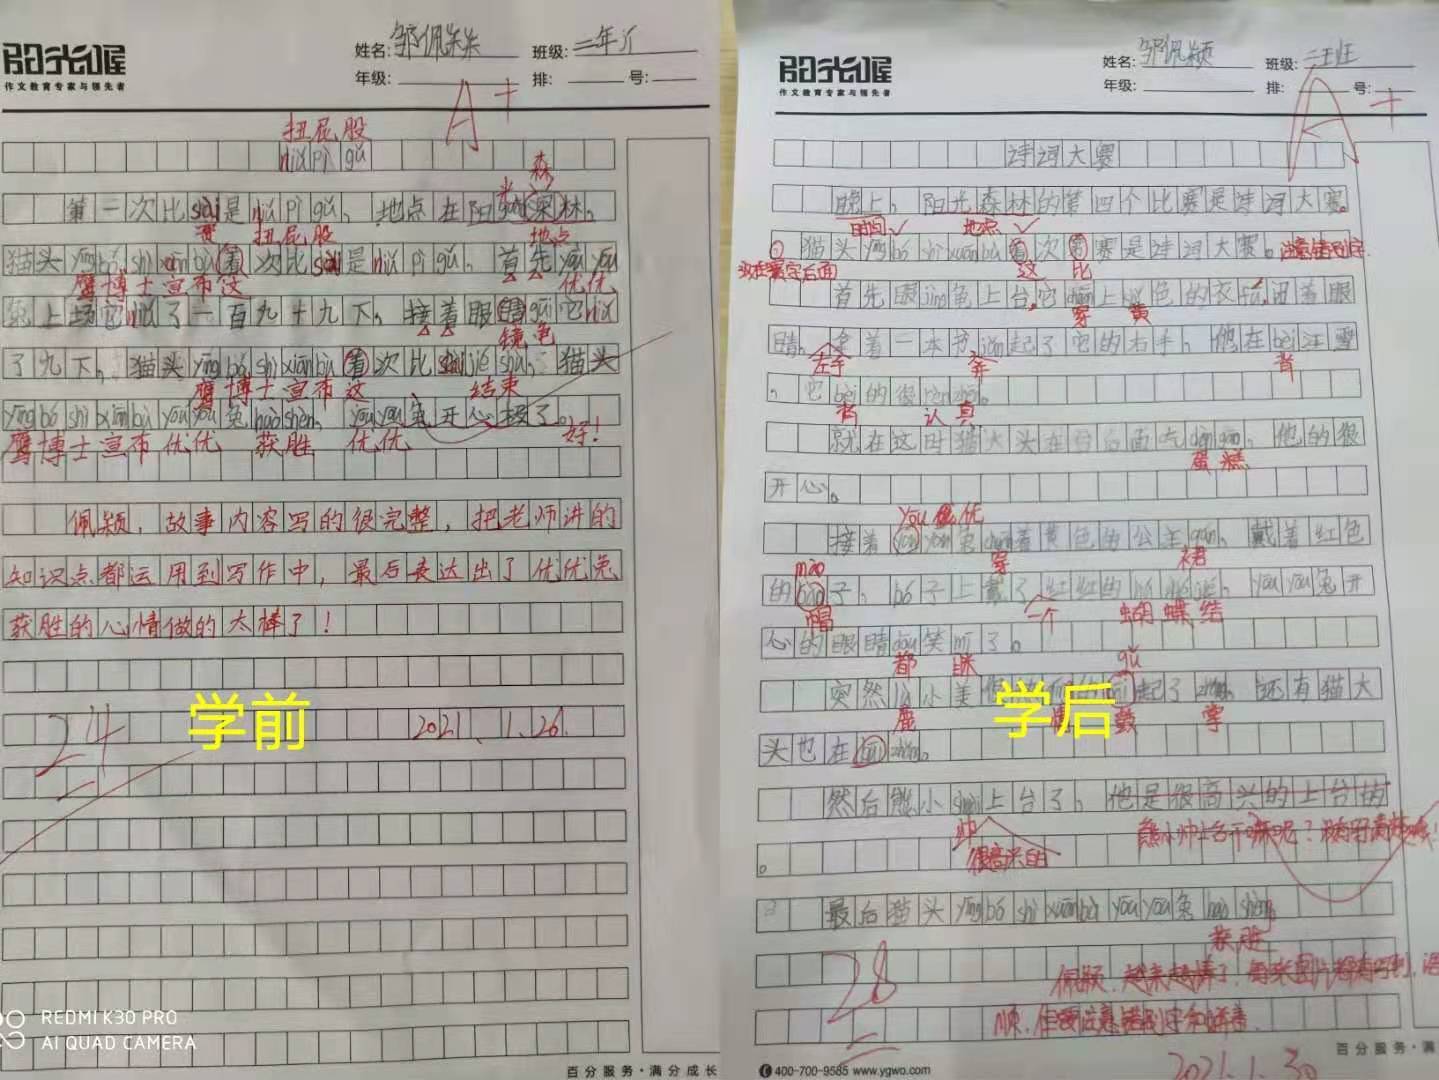 阳光喔
作文教育专家与领先者
姓名:
班级:
年级:
排:
号:
A+
扭屁股
niǔ pì gǔ
森
第一次比sài是niǔ pì gǔ，地点在阳
林，
赛 扭屁股
地点
猫头yīng bó shì xuān bù着次比sài是niǔ pì gǔ，首先yōu yōu
鹰博士宣布这
优优
兔上场它niǔ了一百九十九下，接着眼睛guī它niǔ
镜龟
了九下，猫头yīng bó shì xuān bù着次比sài jié shù，猫头
鹰博士宣布这
结束
yīng bó shì xuān bù yōu yōu兔huò shèng，yōu yōu兔开心极了。
鹰博士宣布优优 获胜 优优
好！
佩颖，故事内容写的很完整，把老师讲的
知识点都运用到写作中，最后表达出了优优兔
获胜的心情做的太棒了！
学前
24
2021.1.26.
REDMI K30 PRO
AI QUAD CAMERA
百分服务·满分成长
阳光喔
作文教育专家与领先者
姓名:
邹佩颖
班级:
年级:
排:
号:
A+
诗词大赛
晚上，阳光森林的第四个比赛是诗词大赛。
时间✓ 地点✓
猫头yīng bó shì xuān bù着次赛赛是诗词大赛。
注意错别字
这 比
首先眼jìng龟上台，它chuān上huáng色的衣fú，闭着眼
穿 黄
睛，拿着一本书
起了它的右手，他在bèi江雪
左手
背
，它bèi的很rèn zhēn。
背 认真
就在这时猫大头在台后面吃dàn gāo，他的很
蛋糕
开心。
优优
接着yōu yōu兔chuān着黄色的公主qún，戴着红色
穿 裙
mào
的
子，
子上戴了红红的hú dié jié，yōu yōu兔开
帽 一个 蝴蝶结
心的眼睛dōu笑mī了。
都 眯
gǔ
突然lù小美
起了zhǎng，还有猫大
鹿 鼓 掌
学后
头也在gǔ zhǎng。
然后熊小shuài上台了，他是很高兴的上台的
帅
很高兴的
。
最后猫头yīng bó shì xuān bù yōu yōu兔huò shèng。
获胜
28
佩颖，越来越棒了，
顺，但要注意错别字和拼音。
2021.1.30
400-700-9585 www.ygwo.com
百分服务·满